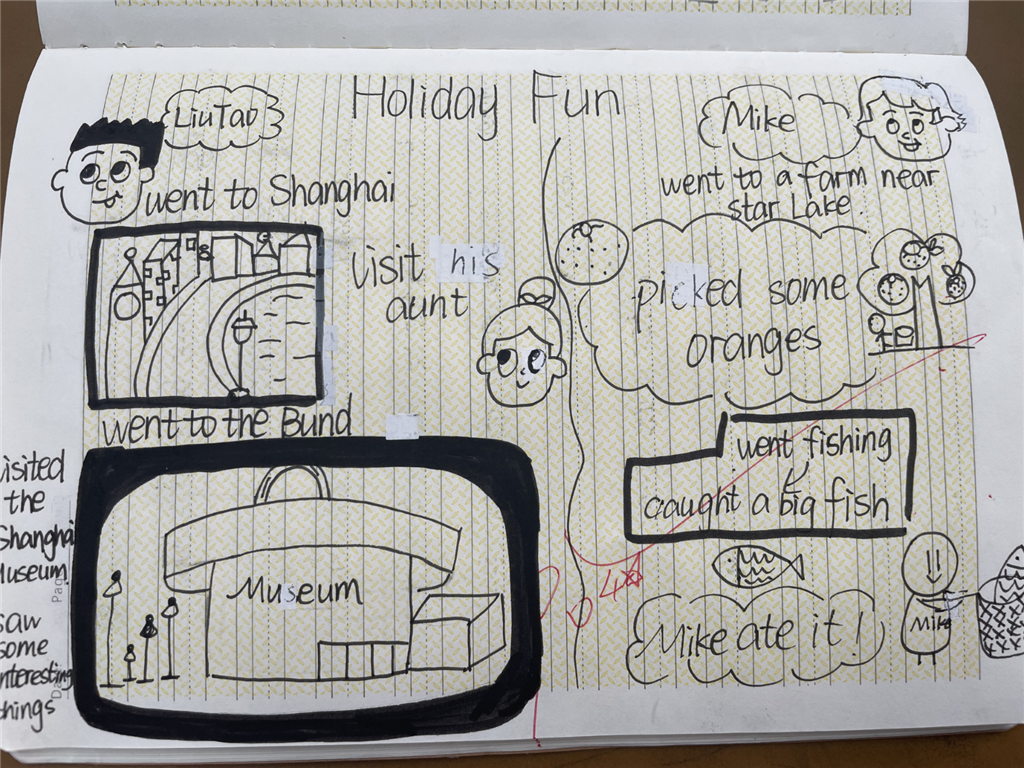 Holiday Fun
LiuTao
went to Shanghai
Visit his
aunt
went to the Bund
isited
the
Shanghai
Museum
saw
some
nteresting
things
Museum
Mike
went to a farm near
star Lake.
picked some
oranges
went fishing
caught a big fish
Mike ate it!
Mike